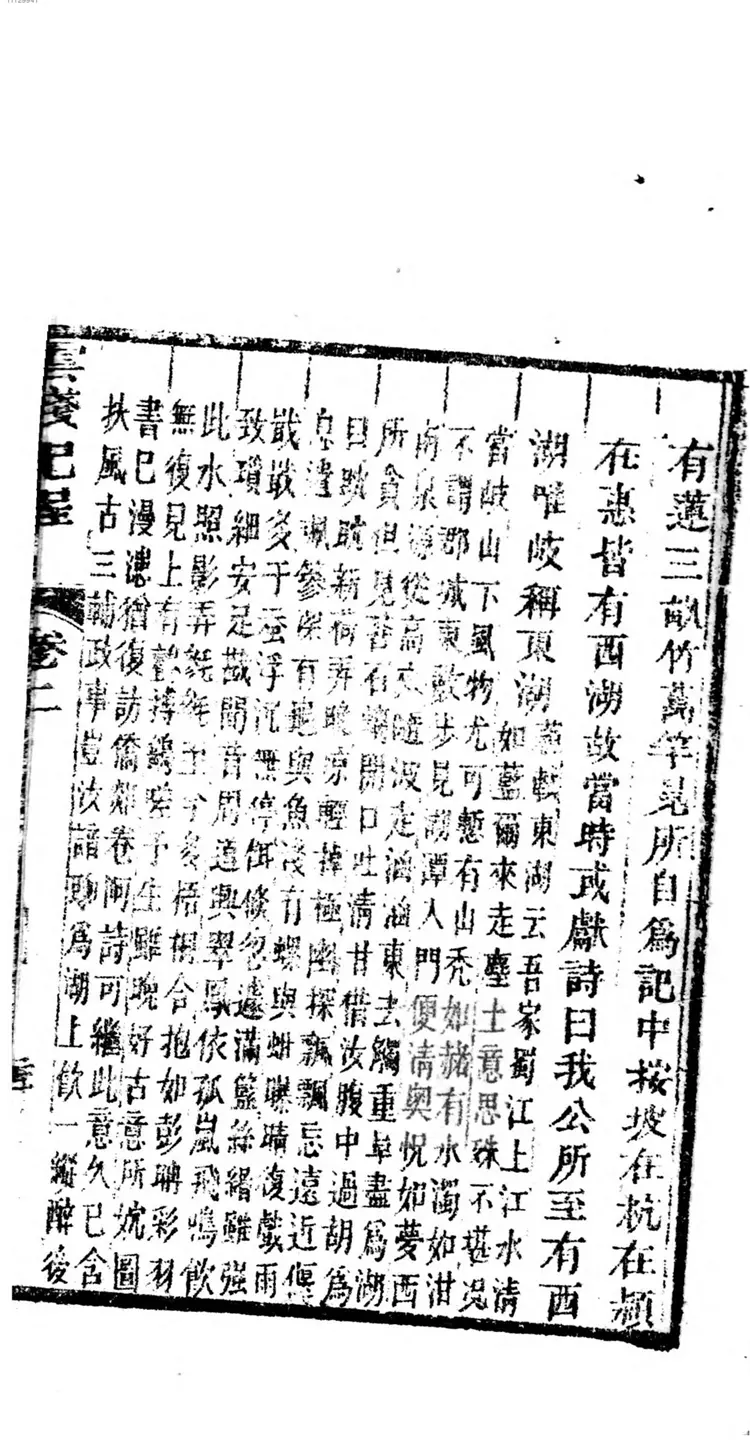 有蓮三畝竹萬竿見所自爲記中按坡在杭在潁
在惠皆有西湖故當時或獻詩曰我公所至有西
湖唯岐稱東湖
蘇軾東湖云吾家蜀江上江水清
如藍爾來走塵土意思殊不堪况
當岐山下風物尤可慙有山禿如赭有水濁如泔
不謂郡城東數步見湖潭入門便清奧怳如夢西
南泉源從高來隨波走涵涵東去觸重阜盡爲湖
所貪但見蒼石螭開口吐清甘借汝腹中過胡爲
目眈眈新荷弄晚凉輕棹極幽探飄飄忘遠近偃
息遺珮篸深有龜與魚淺有螺與蚶曝晴復戲雨
戢戢多于蚕浮沉無停餌倏忽遽滿籃絲緡雖强
致瑣細安足戡聞昔周道興翠鳳依孤嵐飛鳴飲
此水照影弄毿毿至今多梧桐合抱如彭聃彩羽
無復見上有鸇搏鵪嗟予生雖晚好古意所妉圖
書已漫漶猶復訪僑郯卷阿詩可繼此意久已含
扶風古三輔政事豈汝諳聊爲湖上飲一縱醉後
雲棧紀程
卷二